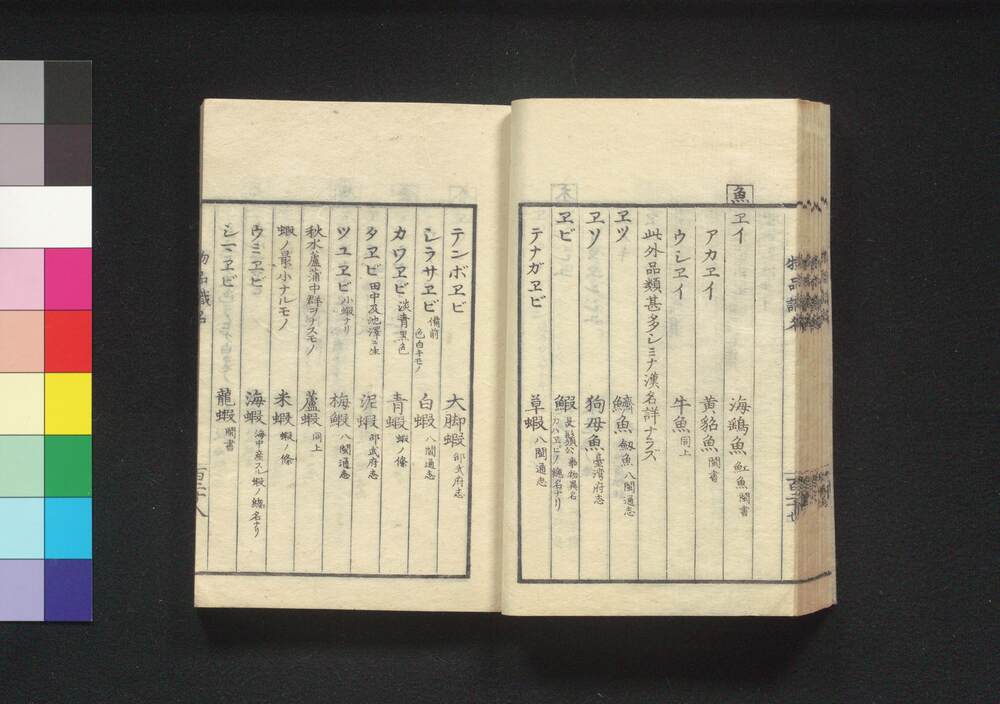 魚
ヱイ 海鷂魚 魟魚閩書
アカヱイ 黄貂魚 閩書
ウシヱイ 牛魚 同上
此外品類甚多シミナ漢名詳ナラズ
ヱツ 鱭魚 魛魚 八閩通志
ヱソ 狗母魚 臺湾府志
ヱビ 鰕 長鬚公 事物異名
カハヱビノ總名ナリ
テナガヱビ 草蝦 八閩通志
百二十七
テンボヱビ 大脚蝦 邵武府志
シラサヱビ 備前 色白キモノ 白蝦 八閩通志
カワヱビ 淡青黒色 青蝦 蝦ノ條
タヱビ 田中及池澤ニ生 泥蝦 邵武府志
ツユヱビ 小蝦ナリ 梅鰕 八閩通志
秋水蘆蒲中群ヲナスモノ 蘆蝦 同上
蝦ノ最小ナルモノ 米蝦 蝦ノ條
ウミヱビ 海蝦 海中産スル蝦ノ總名ナリ
シマヱビ 龍蝦 閩書
物品識名
百二十八